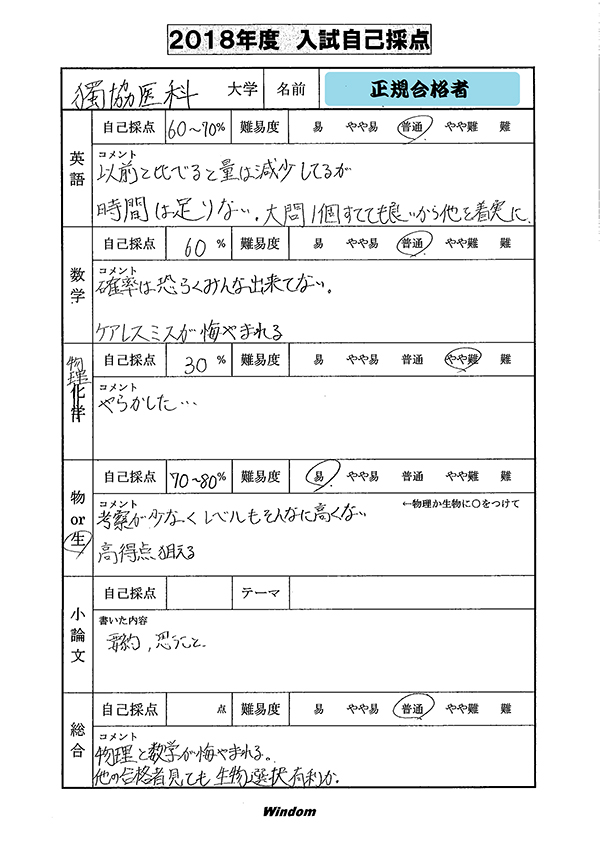 2018年度 入試自己採点
獨協医科 大学 名前 正規合格者
英語 自己採点 60～70% 難易度 易 やや易 普通 やや難 難
コメント
以前と比べると量は減少してるが
時間は足りない。大問1個すてても良いから他を着実に
数学 自己採点 60 % 難易度 易 やや易 普通 やや難 難
コメント
確率は恐らくみんな出来てない。
ケアレスミスが悔やまれる
物理 化学 自己採点 30 % 難易度 易 やや易 普通 やや難 難
コメント
やらかした…
物or生 自己採点 70～80% 難易度 易 やや易 普通 やや難 難
コメント ←物理か生物に○をつけて
考察が少なくレベルもそんなに高くない
高得点狙える
小論文 自己採点 テーマ
書いた内容
要約，思うこと
総合 自己採点 点 難易度 易 やや易 普通 やや難 難
コメント
物理と数学が悔やまれる。
他の合格者見ても生物選択有利か。
Windom